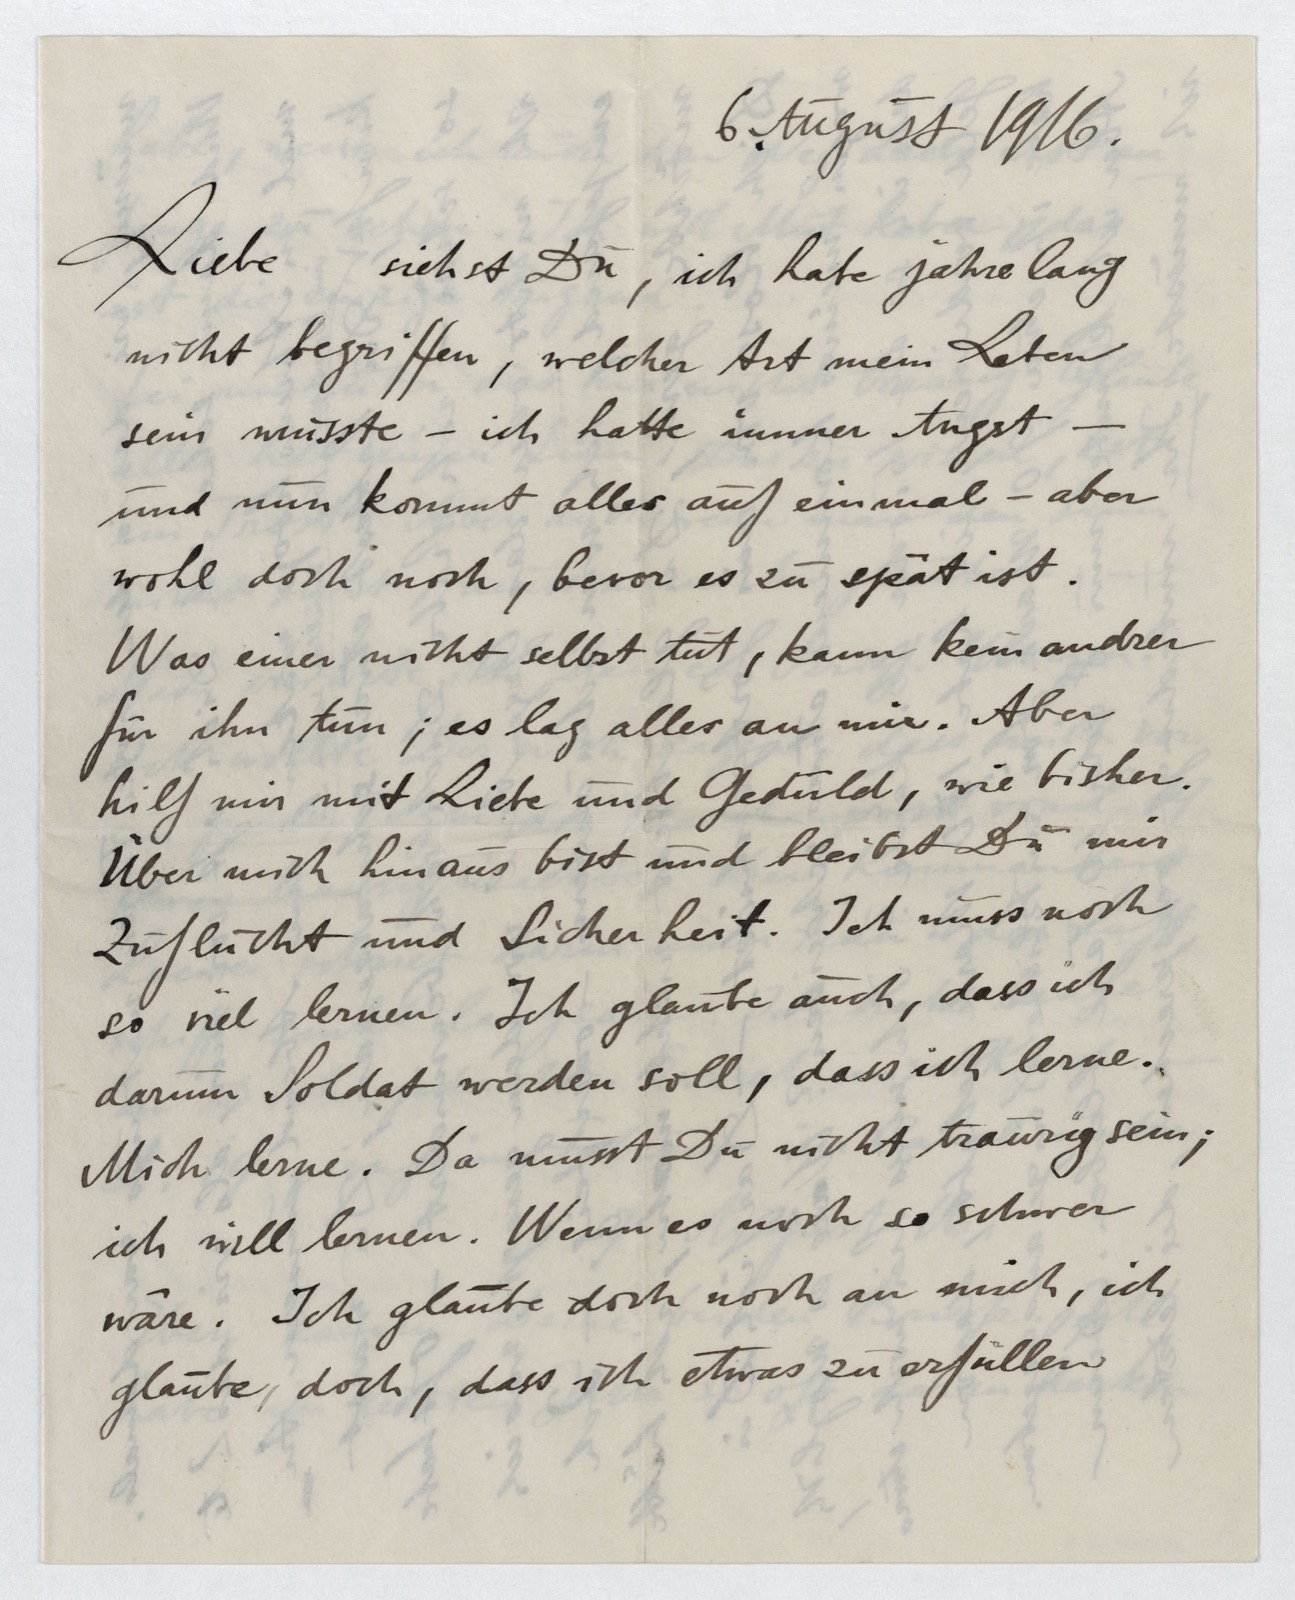 6. August 1916.
Liebe siehst Du, ich habe jahrelang
nicht begriffen, welcher Art mein Leben
sein müsste – ich hatte immer Angst –
und nun kommt alles auf einmal – aber
wohl doch noch, bevor es zu spät ist.
Was einer nicht selbst tut, kann kein andrer
für ihn tun; es lag alles an mir. Aber
hilf mir mit Liebe und Geduld, wie bisher.
Über mich hinaus bist und bleibst Du mir
Zuflucht und Sicherheit. Ich muss noch
so viel lernen. Ich glaube auch, dass ich
darum Soldat werden soll, dass ich lerne.
Mich lerne. Da musst Du nicht traurig sein;
ich will lernen. Wenn es noch so schwer
wäre. Ich glaube doch noch an mich, ich
glaube, doch, dass ich etwas zu erfüllen